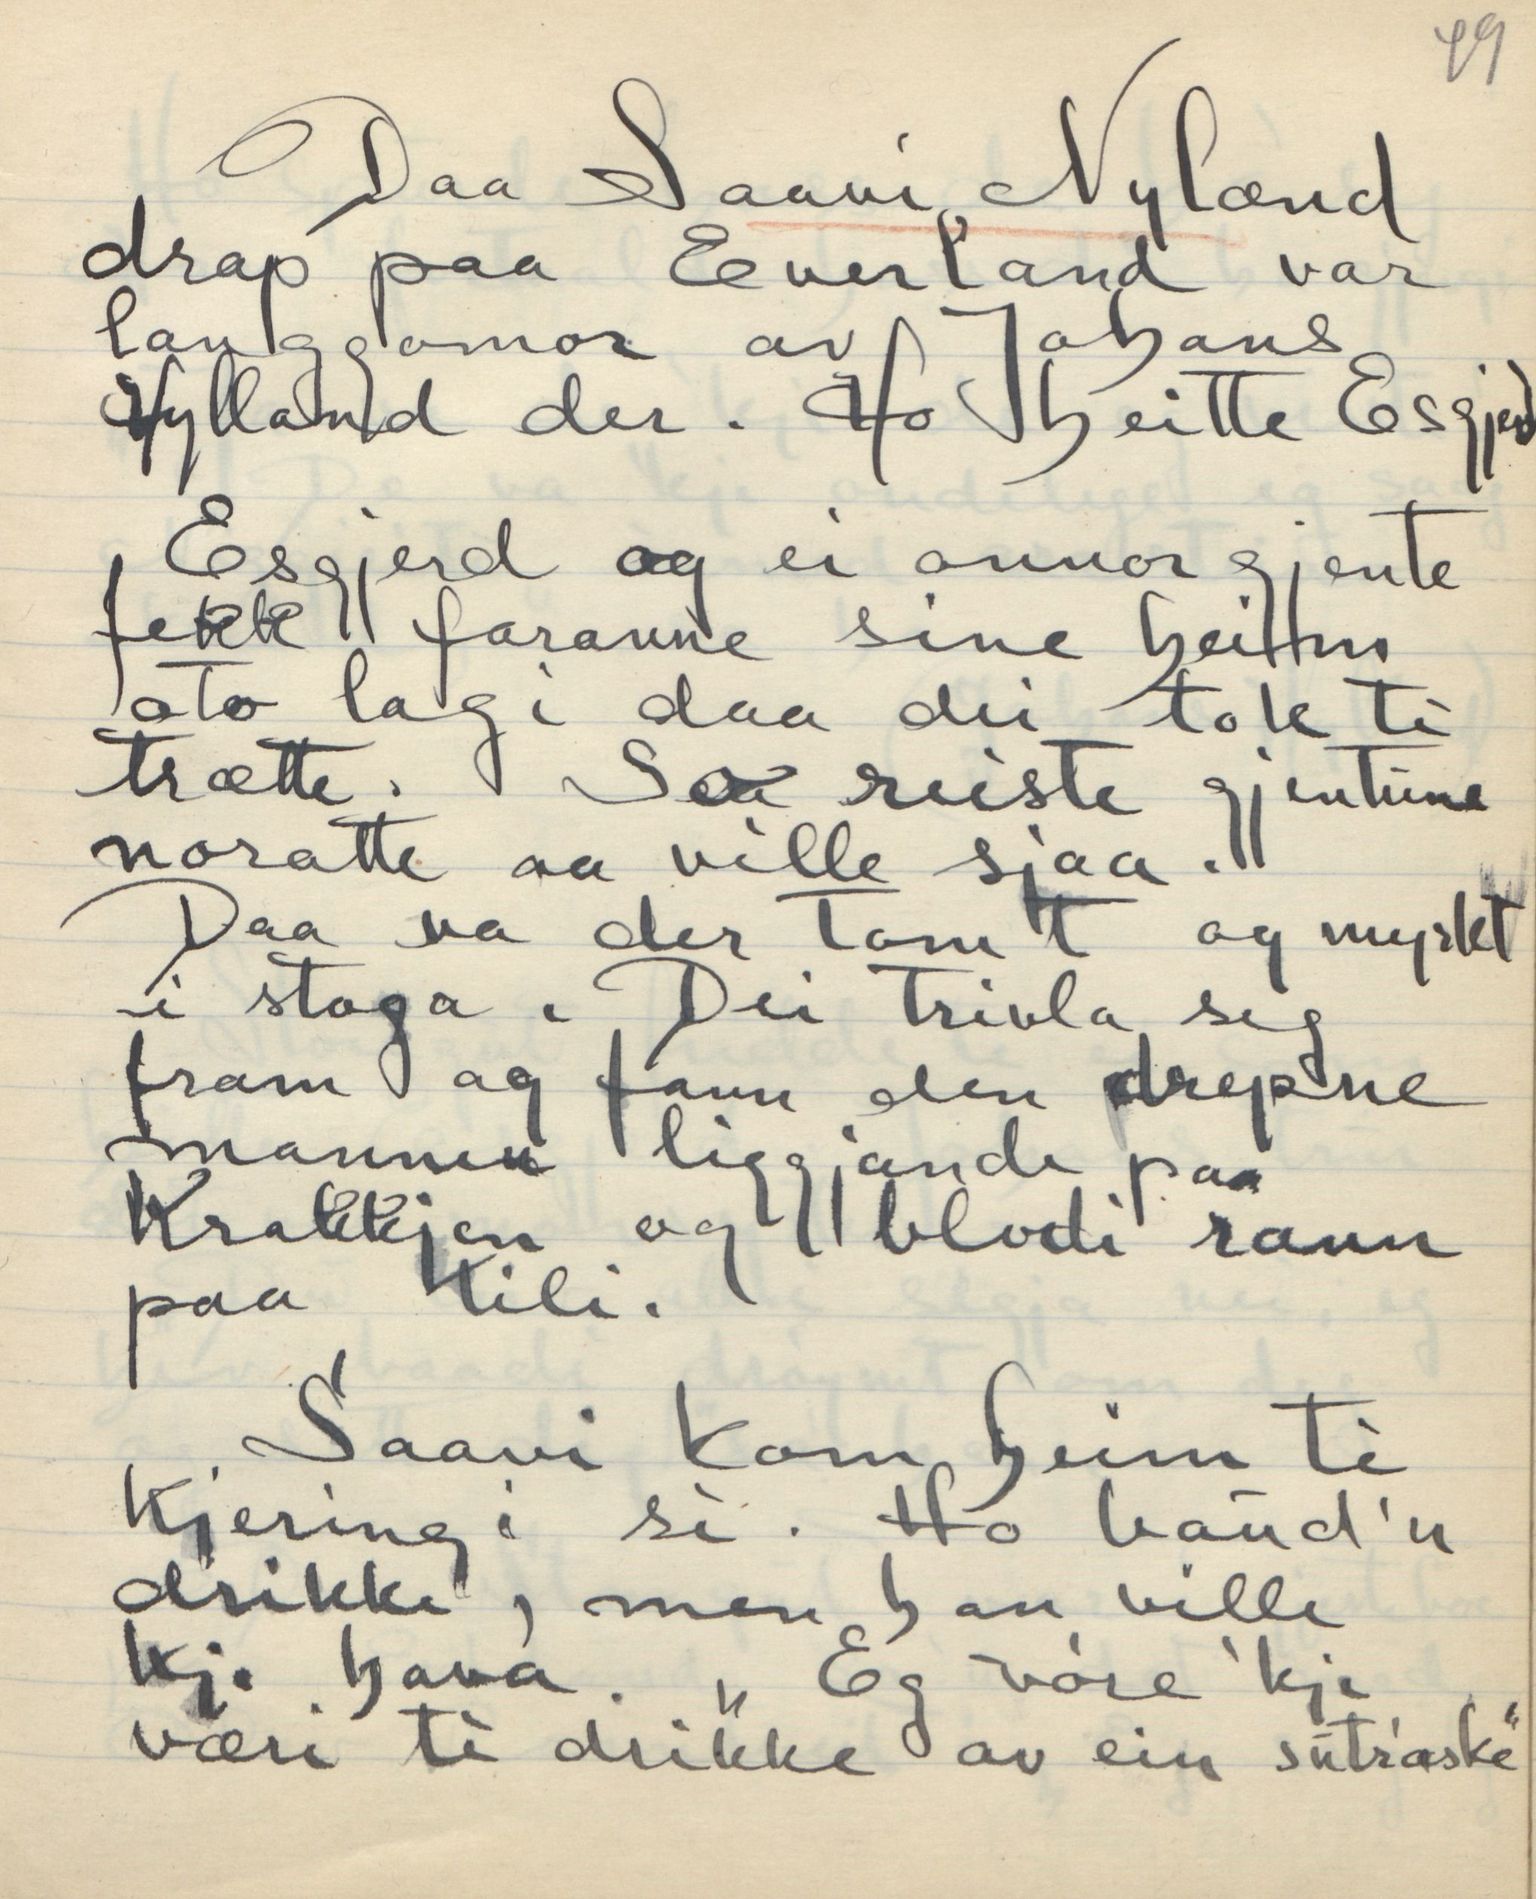 49
Daa Saavi Nylænd
drap paa Everland var
langgomor av Johans
Hylland der. Ho heitte Esgjerd
Esgjerd og ei annor gjente
fekk faranne sine heim
oto lagi daa dei tok ti
trætte. Saa reiste gjentune
noratte aa ville sjaa.
Daa va der tomt og myrkt
i stoga. Dei trivla seg
fram og fann den drepne
mannen liggjande paa
Krakkjen og blodi rann
paa tili.
Saavi kom heim ti
kjeringi si. Ho baud'n
drikke, men han ville
kje hava. „Eg vore 'kje
væri ti drikke av ein sutraske"